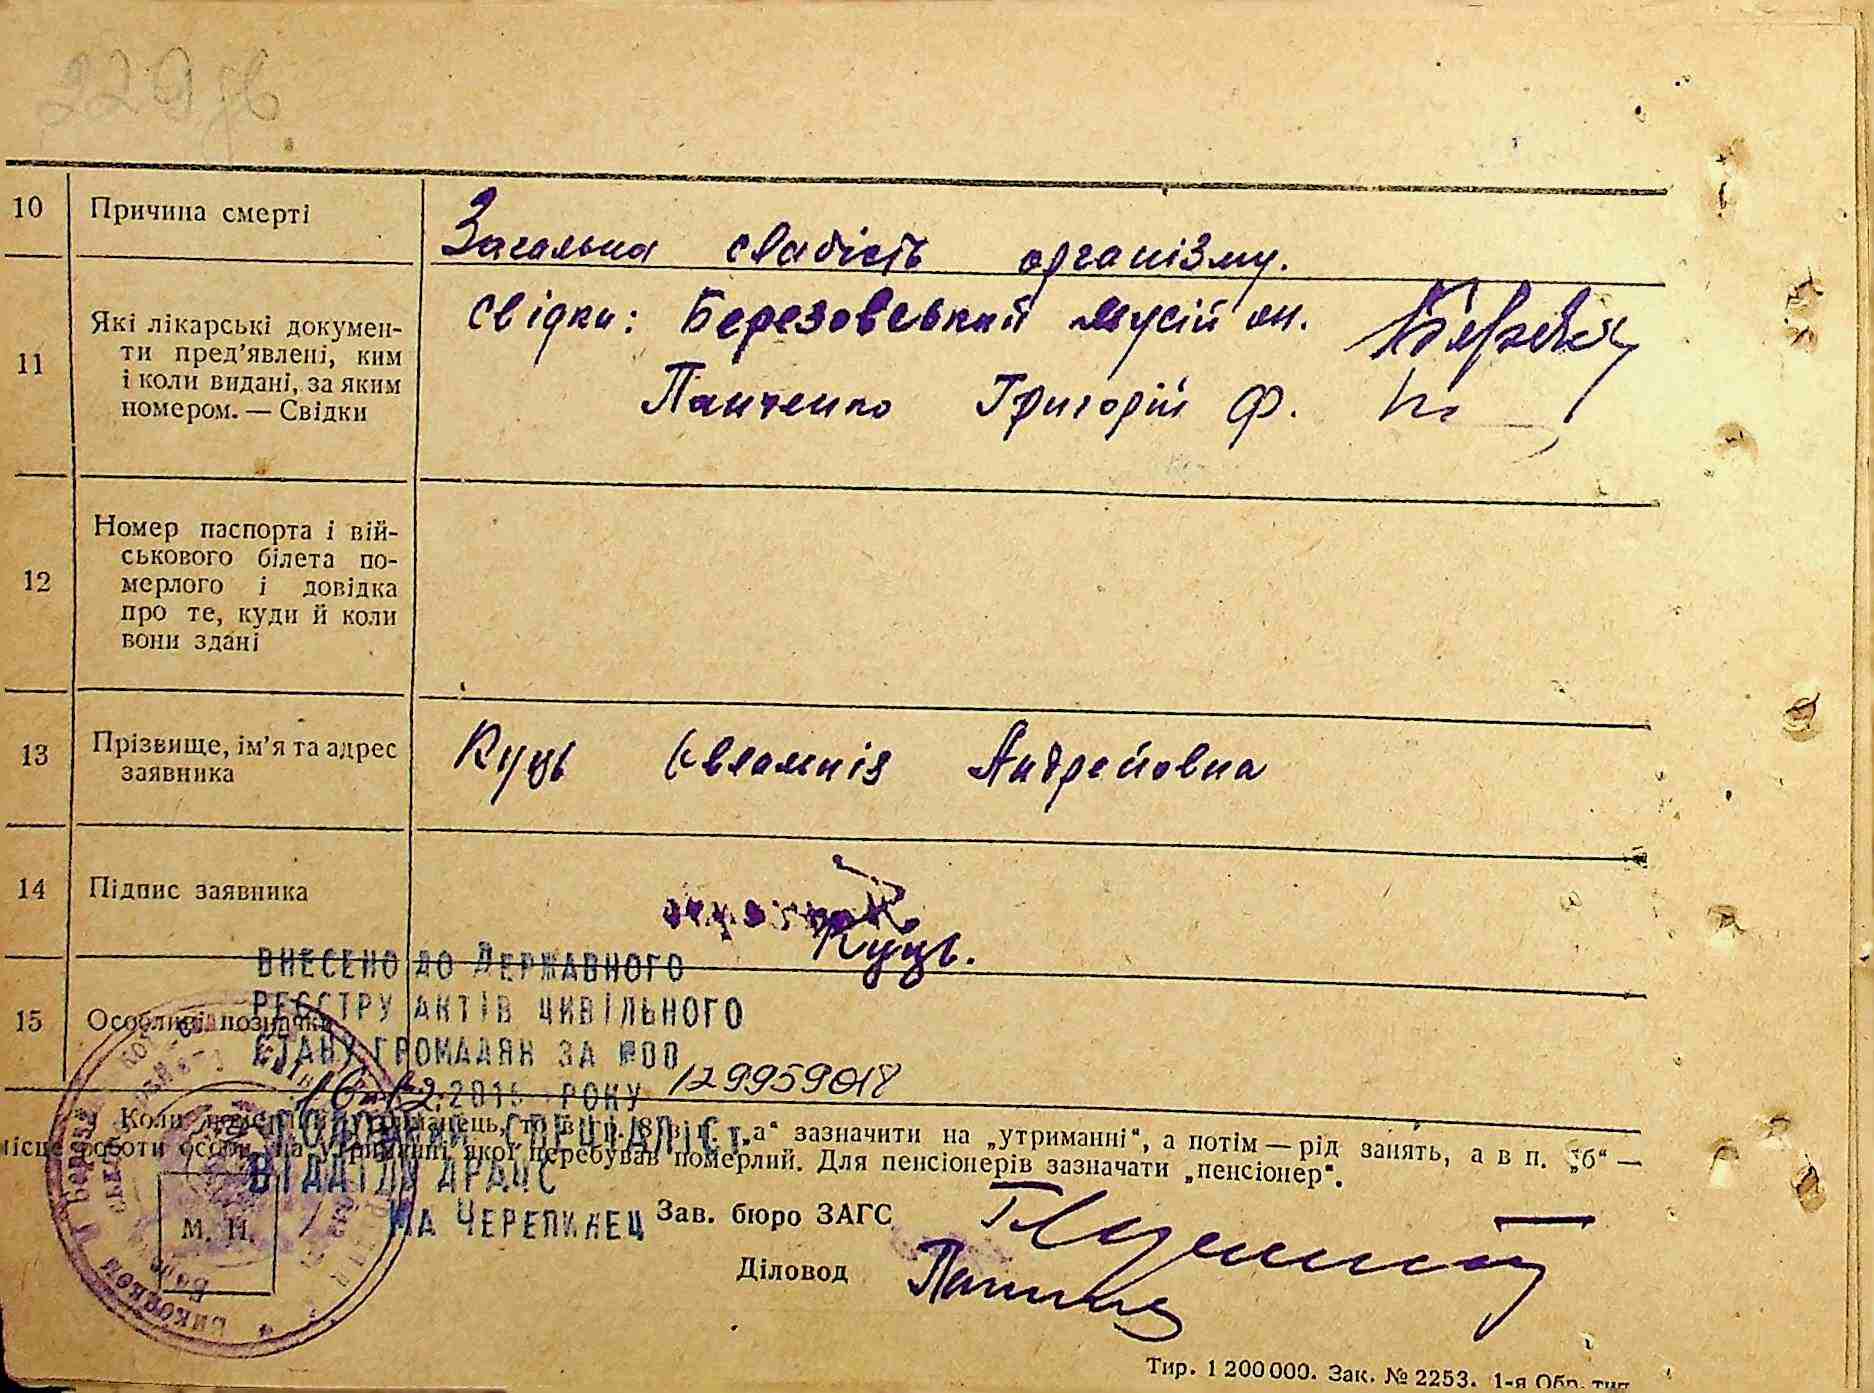 229
10 Причина смерті Загальна слабість організму.
11 Які лікарські докумен-
ти пред’явлені, ким
і коли видані, за яким
номером. — Свідки
Свідки: Березовський Мусій он.
Панченко Григорій Ф.
12 Номер паспорта і вій-
ськового білета по-
мерлого і довідка
про те, куди й коли
вони здані
13 Прізвище, ім’я та адрес
заявника
Куць Євлампія Андрейовна
14 Підпис заявника
Куць.
15 Особливі позначки
ВНЕСЕНО ДО ДЕРЖАВНОГО
РЕЄСТРУ АКТІВ ЦИВІЛЬНОГО
СТАНУ ГРОМАДЯН ЗА №00
129959018
РОКУ
ГОЛОВНИЙ СПЕЦІАЛІСТ
ВІДДІЛУ ДРАЦС
ЧЕРЕПИНЕЦ
„а“ зазначити на „утриманні“, а потім — рід занять, а в п. „б“ —
місце роботи особи, на утриманні якої перебував померлий. Для пенсіонерів зазначати „пенсіонер“.
М. П.
Зав. бюро ЗАГС
Діловод
Тир. 1 200 000. Зак. № 2253. 1-я Обр. тип.